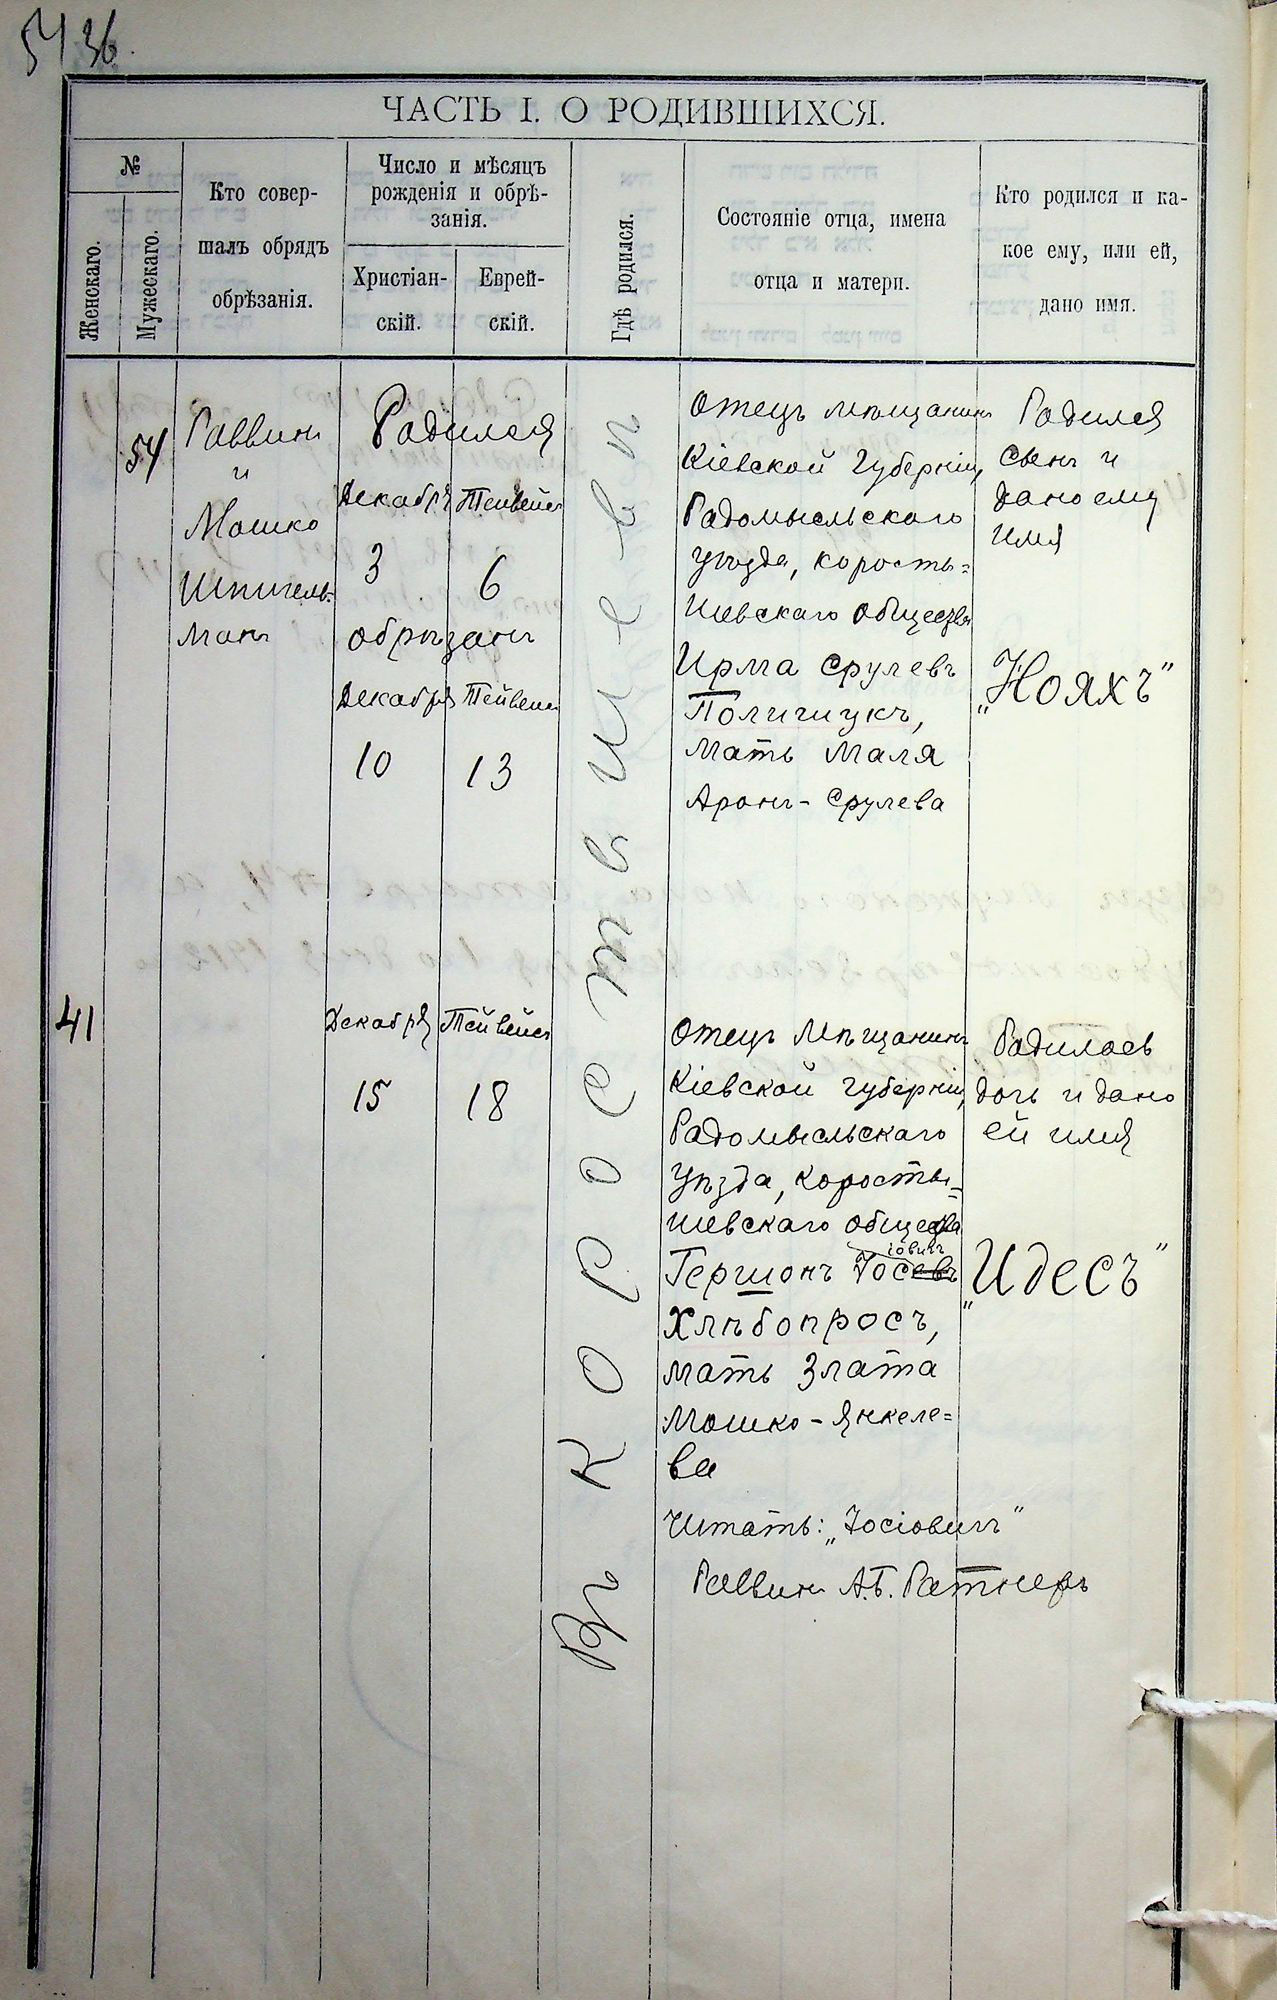 54 36.
ЧАСТЬ I. О РОДИВШИХСЯ.
№
Женскаго.
Мужескаго.
Кто совер-
шалъ обрядъ
обрѣзанія.
Число и мѣсяцъ
рожденія и обрѣ-
занія.
Христіан-
скій.
Еврей-
скій.
Гдѣ родился.
Состояніе отца, имена
отца и матери.
Кто родился и ка-
кое ему, или ей,
дано имя.
54
Раввинъ
и
Мошко
Шпигель-
манъ
Родился
Декабря Тейвейсъ
3 6
обрѣзанъ
Декабря Тейвейсъ
10 13
Въ Коростышевѣ
Отецъ мѣщанинъ
Кіевской губерніи,
Радомысльскаго
уѣзда, коросты=
шевскаго общества
Ирма Срулевъ
Полищукъ,
мать Маля
Аронъ-Срулева
Родился
сынъ и
дано ему
имя
„Нояхъ"
41
Декабря Тейвейсъ
15 18
Отецъ мѣщанинъ
Кіевской губерніи,
Радомысльскаго
уѣзда, коросты=
шевскаго общества
іовичъ
Гершонъ Іосевъ
Хлѣбопросъ,
мать Злата
Мошко-Янкеле=
ва
Родилась
дочь и дано
ей имя
„Идесъ"
Читать: „Іосіовичъ"
Раввинъ А.Б. Ратнеръ